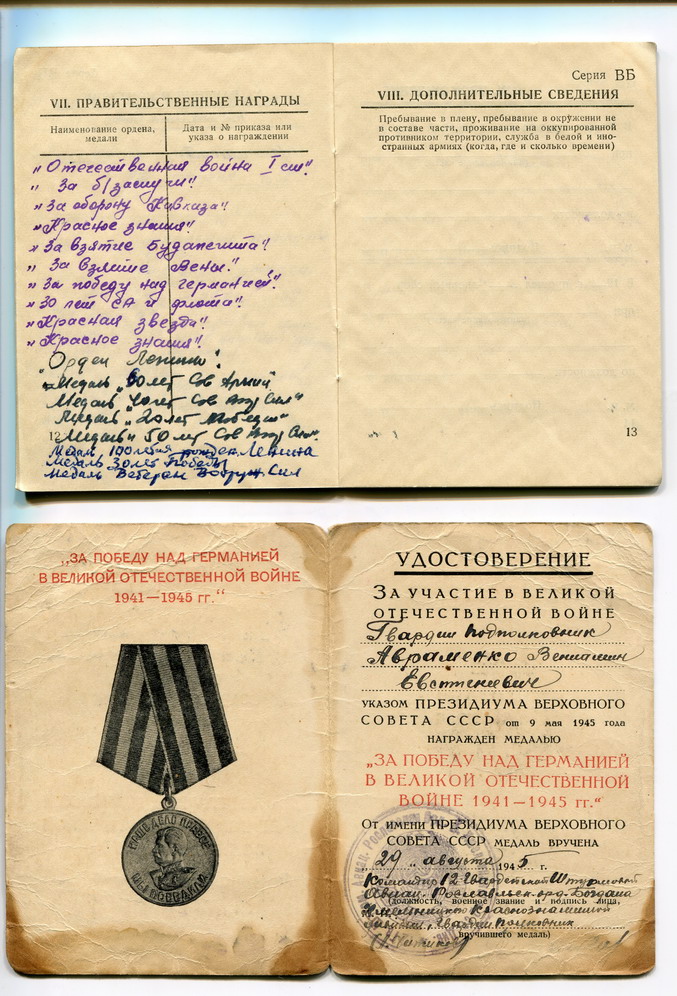 VII. ПРАВИТЕЛЬСТВЕННЫЕ НАГРАДЫ
Наименование ордена, медали
Дата и № приказа или указа о награждении
„Отечественная война I ст".
„ За б/заслуги"
„За оборону Кавказа"
„Красное знамя"
„За взятие Будапешта"
„ За взятие Вены."
„За победу над германией".
„30 лет СА и флота".
„Красная звезда"
„Красное знамя".
„Орден Ленина".
Медаль „Сов Армий
Медаль „40 лет Сов Воор Сил"
Медаль „20 лет Победы"
12
Медаль „50 лет Сов Воор Сил".
Медаль 100летия рожден. Ленина
Медаль 30 лет Победы
Медаль Ветеран Вооруж Сил
Серия ВБ
VIII. ДОПОЛНИТЕЛЬНЫЕ СВЕДЕНИЯ
Пребывание в плену, пребывание в окружении не
в составе части, проживание на оккупированной
противником территории, служба в белой и ино-
странных армиях (когда, где и сколько времени)
13
„ЗА ПОБЕДУ НАД ГЕРМАНИЕЙ
В ВЕЛИКОЙ ОТЕЧЕСТВЕННОЙ ВОЙНЕ
1941—1945 гг.“
НАШЕ ДЕЛО ПРАВОЕ
МЫ ПОБЕДИЛИ
УДОСТОВЕРЕНИЕ
ЗА УЧАСТИЕ В ВЕЛИКОЙ
ОТЕЧЕСТВЕННОЙ ВОЙНЕ
Гвардии подполковник
Авраменко Вениамин
Евстигневич
УКАЗОМ ПРЕЗИДИУМА ВЕРХОВНОГО
СОВЕТА СССР от 9 мая 1945 года
НАГРАЖДЕН МЕДАЛЬЮ
„ЗА ПОБЕДУ НАД ГЕРМАНИЕЙ
В ВЕЛИКОЙ ОТЕЧЕСТВЕННОЙ
ВОЙНЕ 1941—1945 гг.“
ОТ ИМЕНИ ПРЕЗИДИУМА ВЕРХОВНОГО
СОВЕТА СССР МЕДАЛЬ ВРУЧЕНА
„29„ августа 1945 г.
Командир 12 Гвардейской Штурмовой
Авиац. Рославльск. орд. Богдана
(должность, военное звание и подпись лица,
Хмельницкого Краснознаменной
дивизии, Гвардии полковник
вручившего медаль)